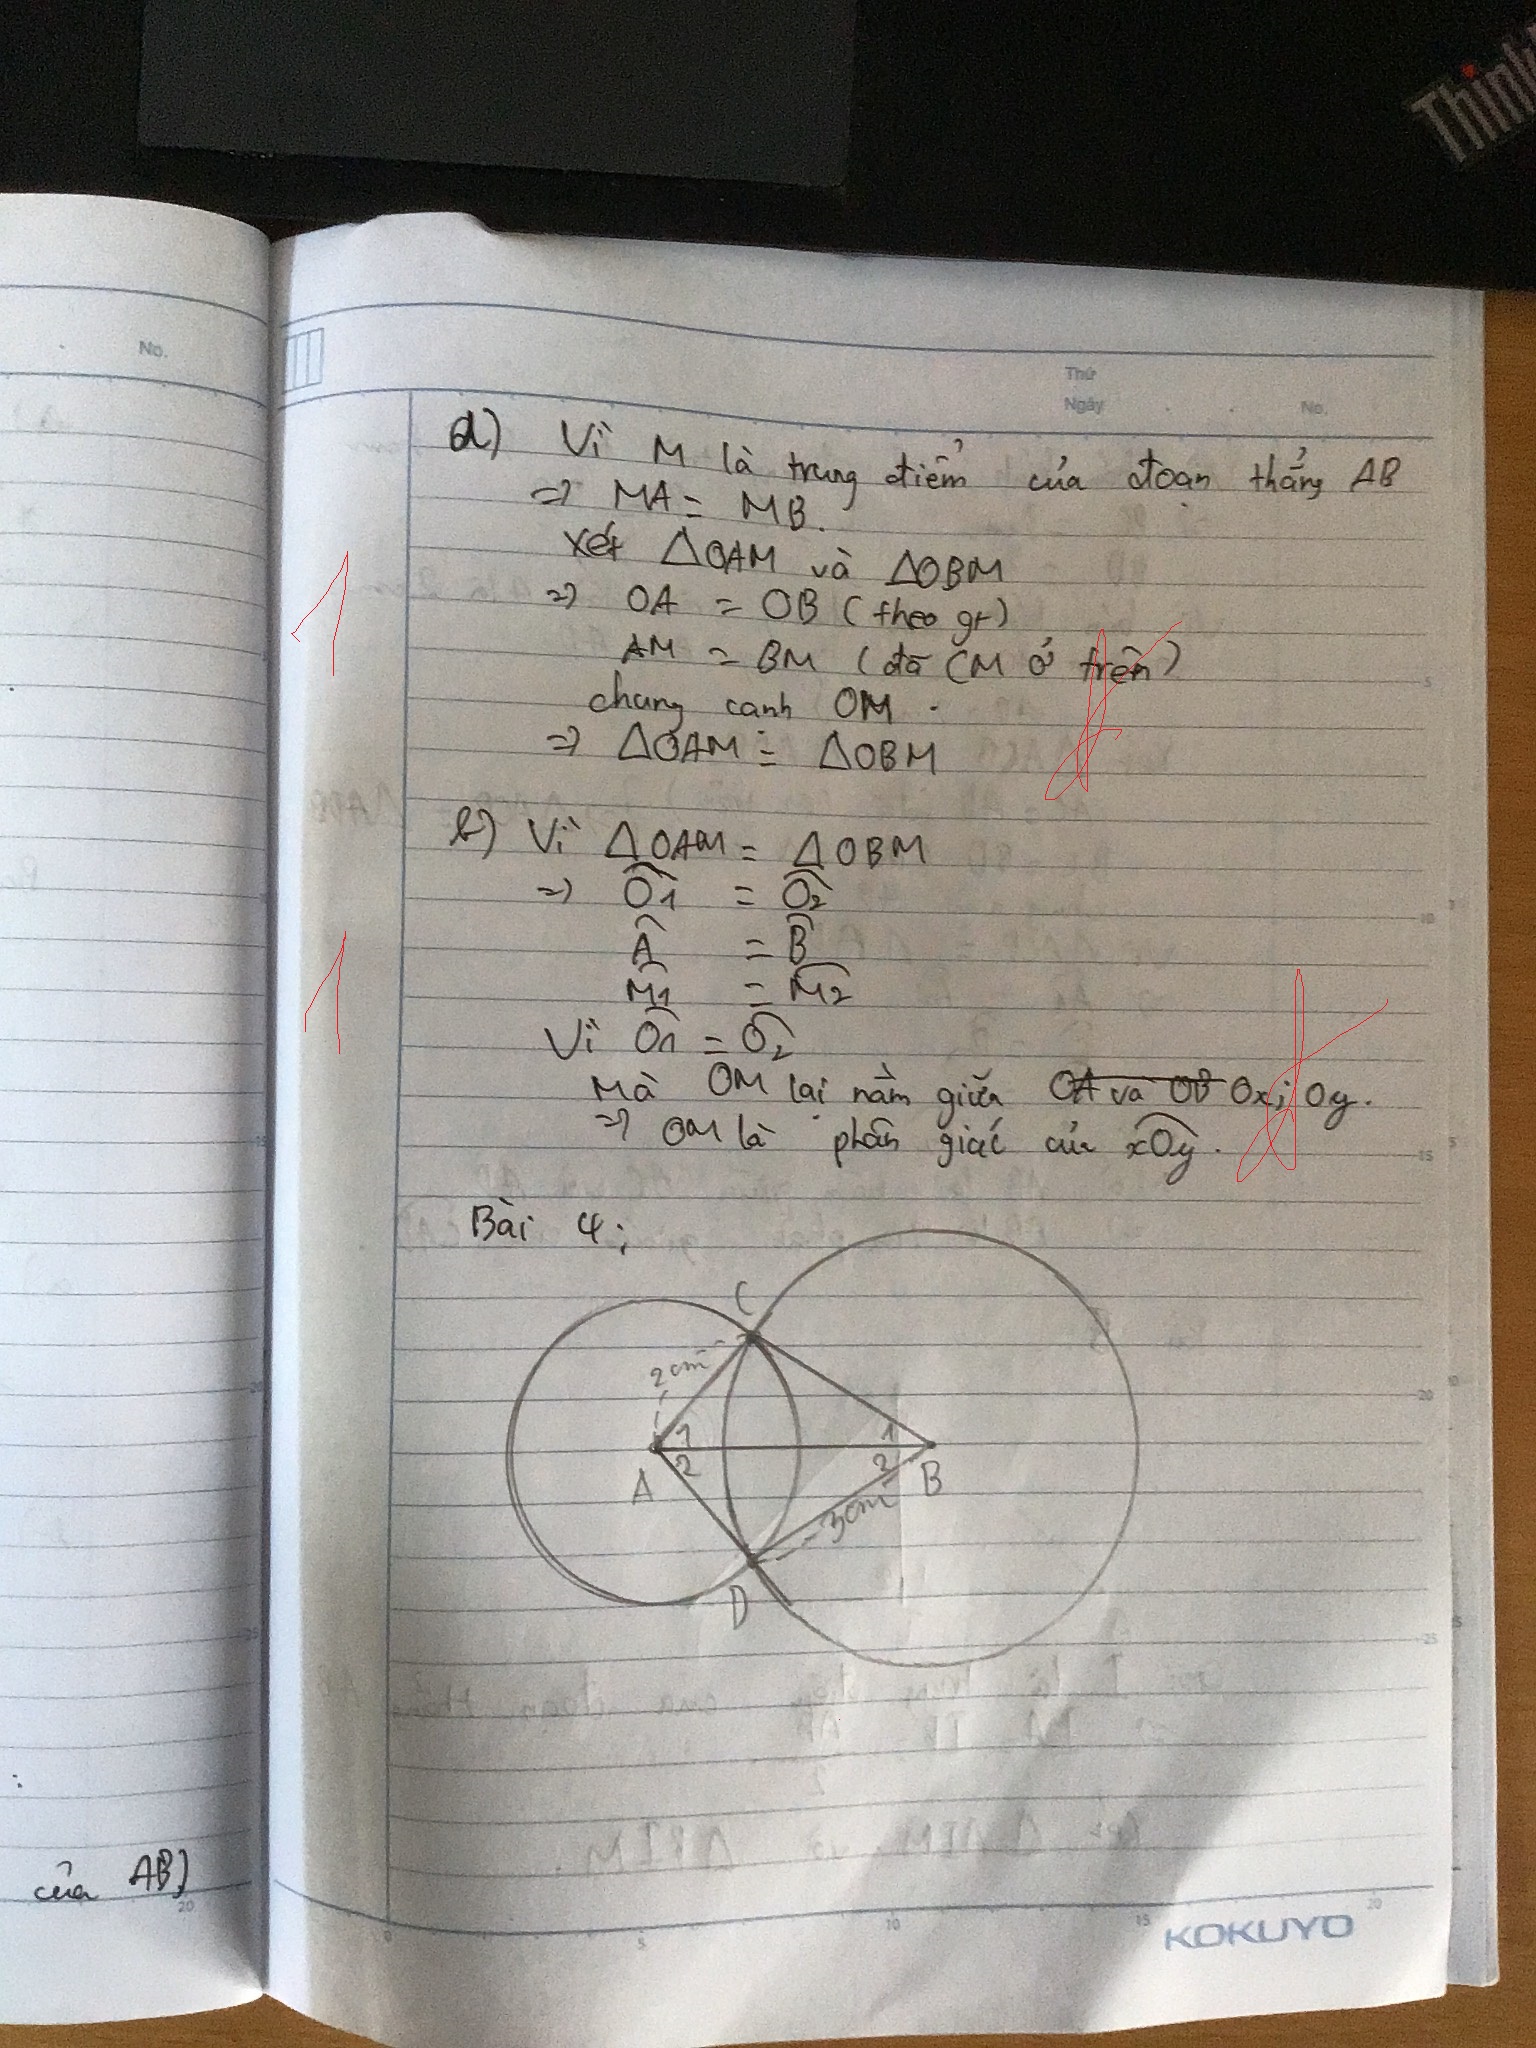 Thinl
No.
Thứ
Ngày
No.
a) Vì M là trung điểm của đoạn thẳng AB
=> MA = MB.
xét ΔOAM và ΔOBM
=> OA = OB (theo gt)
AM = BM (đã CM ở trên)
chung cạnh OM.
=> ΔOAM = ΔOBM
1
b) Vì ΔOAM = ΔOBM
=> Ô1 = Ô2
Â = B̂
M̂1 = M̂2
1
Vì Ô1 = Ô2
Mà OM lại nằm giữa OA và OB Ox; Oy.
=> OM là phân giác của xOy.
Bài 4:
C
2cm
1
1
2
2
A
B
3cm
D
của AB)
20
5
10
15
20
5
10
15
20
25
KOKUYO